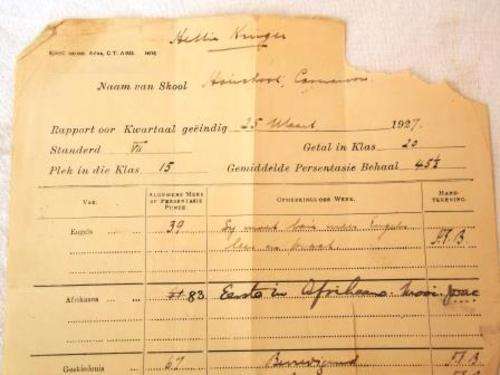 Hettie Kruger
Naam van Skool Carnarvon
Rapport oor Kwartaal geëindig 25 Maart 1927.
Standerd VII Getal in Klas 20
Plek in die Klas 15 Gemiddelde Persentasie Behaal 45½
Vak. Algemene Merk of Persentasie Punte Opmerkings oor Werk. Hand-tekening.
Engels 39 Sy moet baie meer Engels
lees en praat. H.B
Afrikaans 83 Eerste in Afrikaans. Mooi.
Geskiedenis 67 Bevredigend H.B